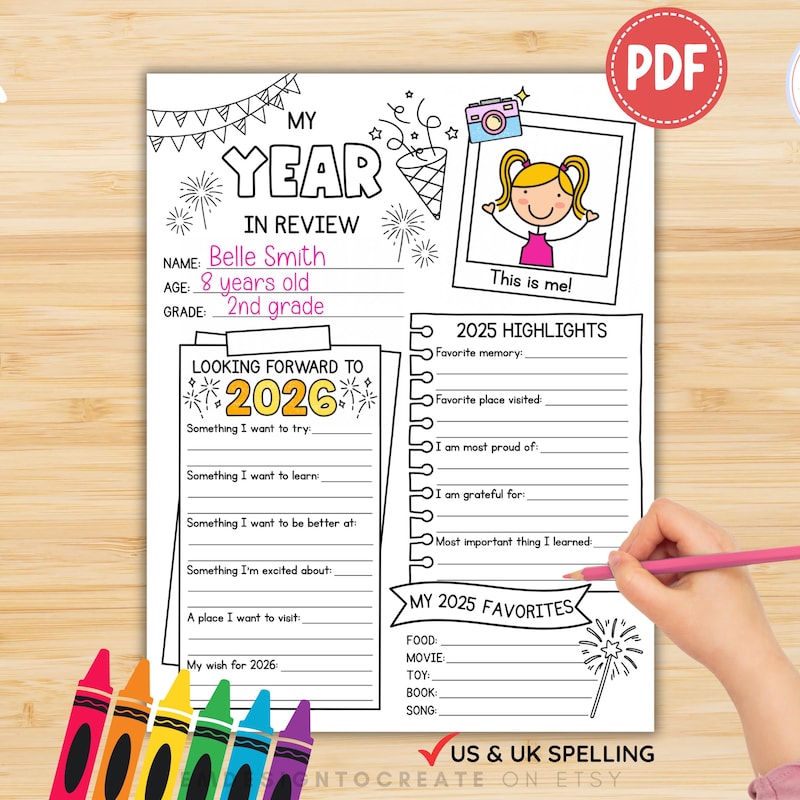 PDF
MY
YEAR
IN REVIEW
NAME: Belle Smith
AGE: 8 years old
GRADE: 2nd grade
This is me!
LOOKING FORWARD TO
2026
Something I want to try:
Something I want to learn:
Something I want to be better at:
Something I'm excited about:
A place I want to visit:
My wish for 2026:
2025 HIGHLIGHTS
Favorite memory:
Favorite place visited:
I am most proud of:
I am grateful for:
Most important thing I learned:
MY 2025 FAVORITES
FOOD:
MOVIE:
TOY:
BOOK:
SONG:
US & UK SPELLING
EMDESIGNTOCREATE ON ETSY